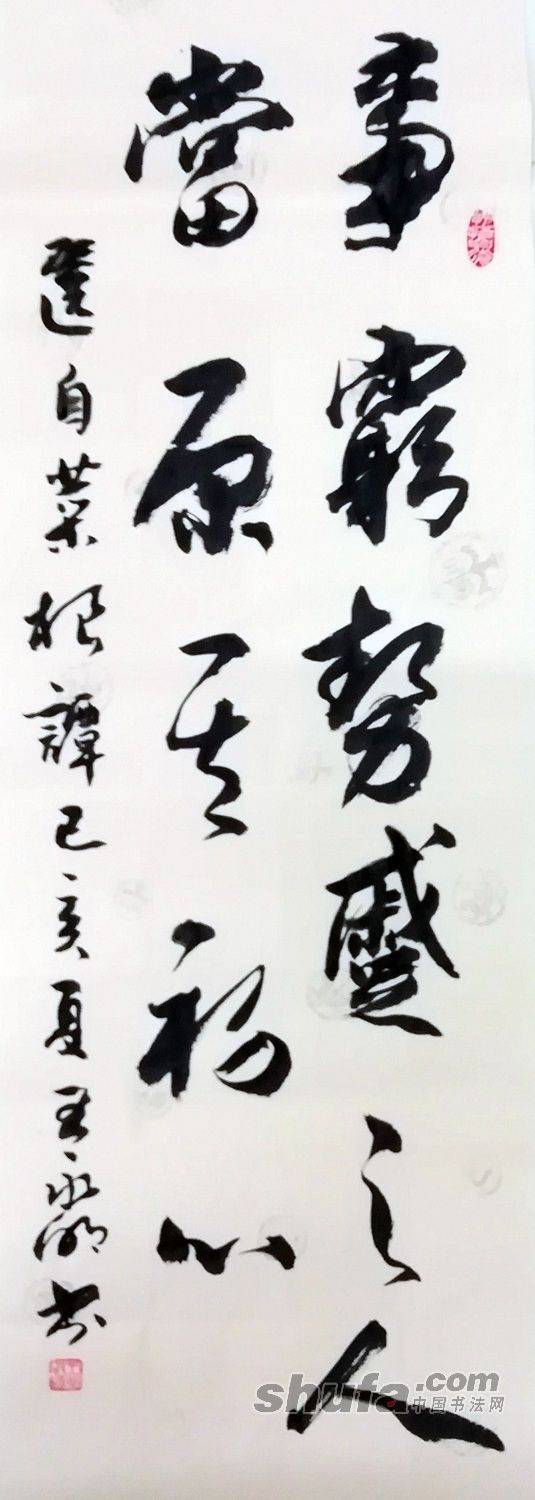 事窮勢蹙之人
當原其初心
選自菜根譚己亥夏王永書
shufa.com
中国书法网